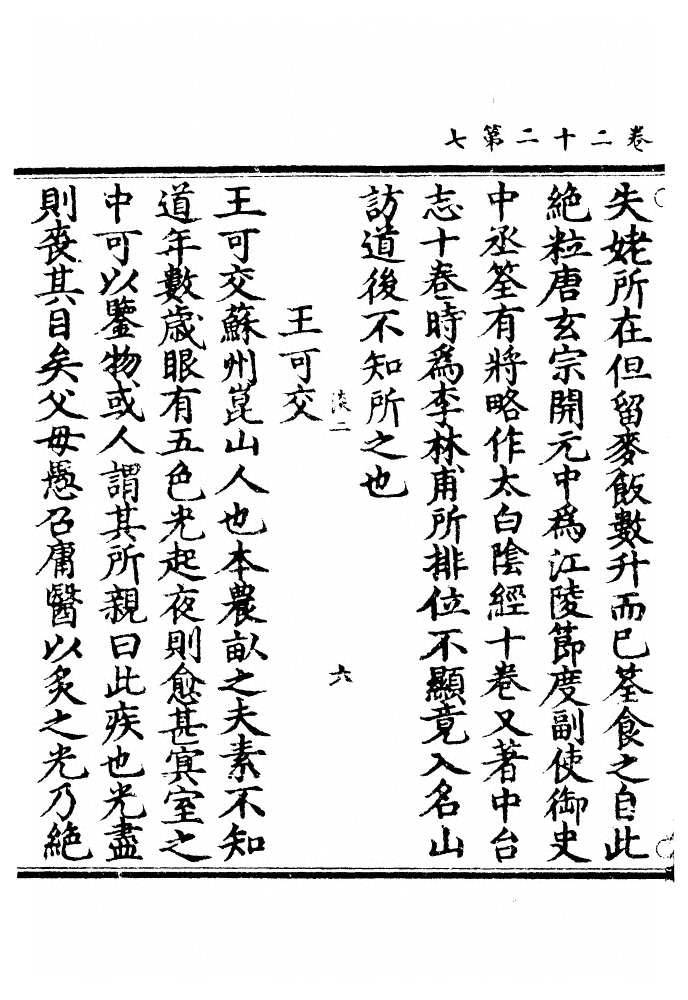 卷二十二第七
失姥所在但留麥飯數升而已筌食之自此
絶粒唐玄宗開元中爲江陵節度副使御史
中丞筌有將略作太白陰經十卷又著中台
志十卷時爲李林甫所排位不顯竟入名山
訪道後不知所之也
淡二
六
王可交
王可交蘇州崑山人也本農畝之夫素不知
道年數歲眼有五色光起夜則愈甚冥室之
中可以鑒物或人謂其所親曰此疾也光盡
則喪其目矣父母愚召庸醫以炙之光乃絶